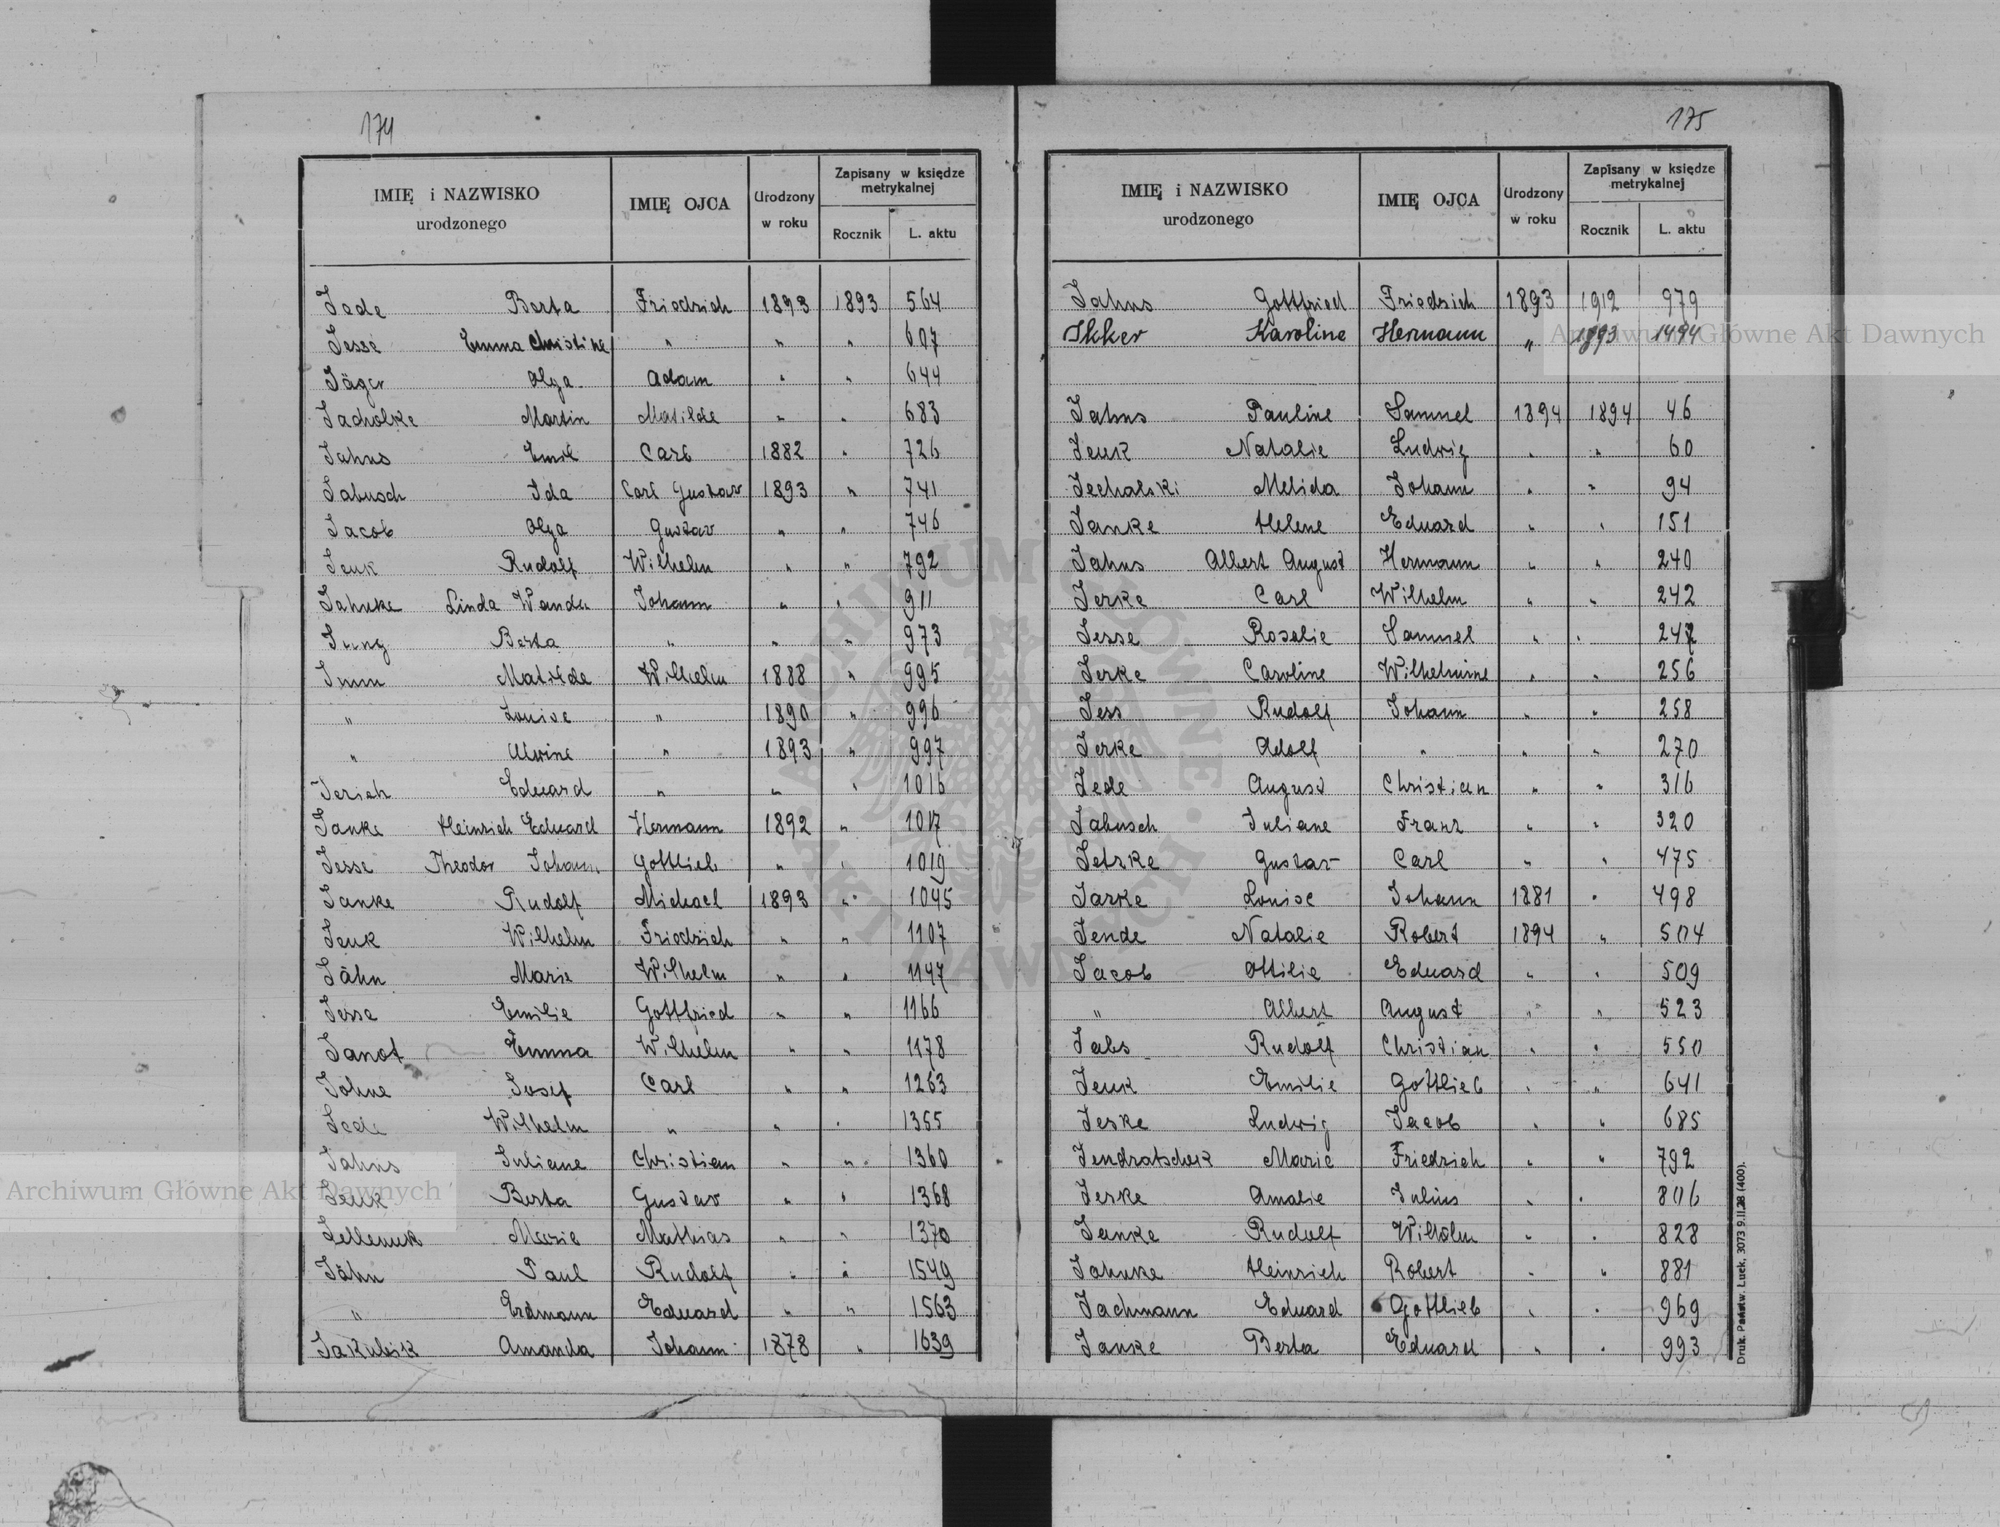 174
IMIĘ i NAZWISKO urodzonego IMIĘ OJCA Urodzony w roku Zapisany w księdze metrykalnej Rocznik L. aktu
Jede Berta Friedrich 1893 1893 564
Jesse Emma Christine " " " 607
Jäger Olga Adam " " 644
Jacholke Martin Matilde " " 683
Jahns Emil Carl 1882 " 726
Jabusch Ida Carl Gustav 1893 " 741
Jacob Olga Gustav " " 746
Jeuk Rudolf Wilhelm " " 792
Jahnke Linda Wanda Johann " " 911
Jung Berta " " " 973
Imm Matilde Wilhelm 1888 " 995
" Louise " 1890 " 996
" Alwine " 1893 " 997
Jerich Eduard " " " 1016
Janke Heinrich Eduard Hermann 1892 " 1017
Jesse Theodor Johann Gottlieb " " 1019
Janke Rudolf Michael 1893 " 1045
Jeuk Wilhelm Friedrich " " 1107
Jähn Marie Wilhelm " " 1147
Jesse Emilie Gottfried " " 1166
Janot Emma Wilhelm " " 1178
Johne Josef Carl " " 1263
Jede Wilhelm " " " 1355
Jahns Juliane Christian " " 1360
Jeuk Berta Gustav " " 1368
Jellenuk Marie Mathias " " 1370
Jähn Paul Rudolf " " 1549
" Erdmann Eduard " " 1563
Jakubik Amanda Johann 1878 " 1639
175
IMIĘ i NAZWISKO urodzonego IMIĘ OJCA Urodzony w roku Zapisany w księdze metrykalnej Rocznik L. aktu
Jahns Gottfried Friedrich 1893 1912 979
Ikker Karoline Hermann " 1893 1494
Jahns Pauline Samuel 1894 1894 46
Jeuk Natalie Ludwig " " 60
Jechalski Melida Johann " " 94
Janke Helene Eduard " " 151
Jahns Albert August Hermann " " 240
Jerke Carl Wilhelm " " 242
Jesse Rosalie Samuel " " 247
Jerke Caroline Wilhelmine " " 256
Jess Rudolf Johann " " 258
Jerke Adolf " " " 270
Jede August Christian " " 316
Jabusch Juliane Franz " " 320
Jetzke Gustav Carl " " 475
Jarke Louise Johann 1881 " 498
Jende Natalie Robert 1894 " 504
Jacob Ottilie Eduard " " 509
" Albert August " " 523
Jabs Rudolf Christian " " 550
Jeuk Emilie Gottlieb " " 641
Jeske Ludwig Jacob " " 685
Jendratschek Marie Friedrich " " 792
Jeske Amalie Julius " " 806
Janke Rudolf Wilhelm " " 828
Jahnke Heinrich Robert " " 881
Jachmann Eduard Gottlieb " " 969
Janke Berta Eduard " " 993
Druk. Państw. Łuck. 3073 9.II.28 (400).
Archiwum Główne Akt Dawnych
Archiwum Główne Akt Dawnych
ARCHIWUM GŁÓWNE AKT DAWNYCH